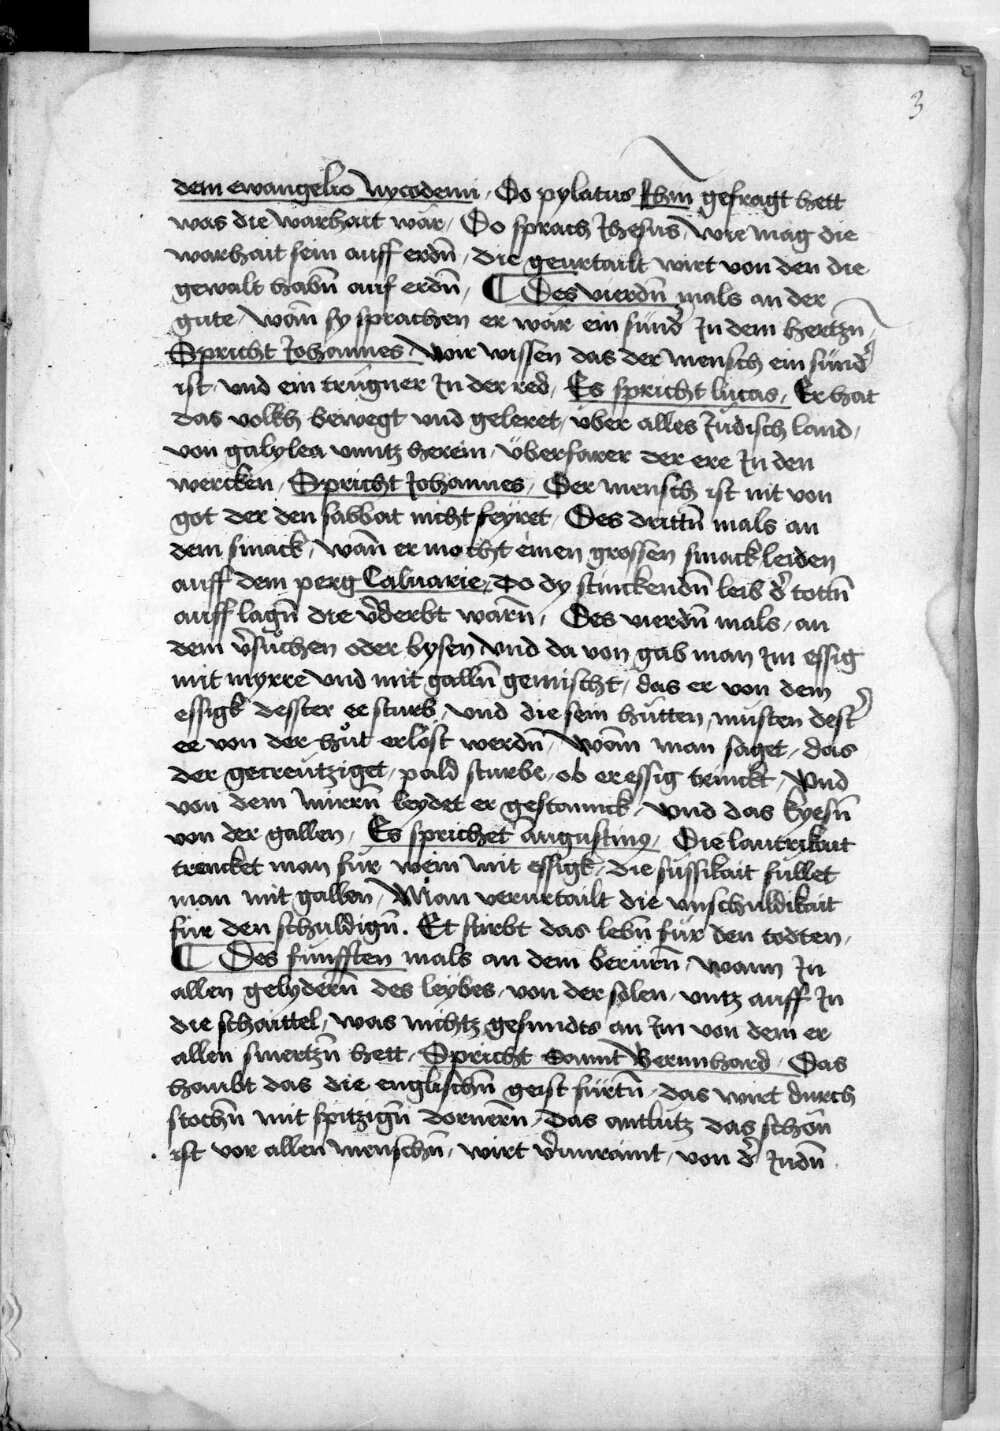 3
dem ewangelio Nycodemi, Do pylatus Ihm gefragt hett
was die warhait wär, Do sprach Jhesus, wie mag die
warhait sein auff erdn̄, die geurtailt wirt von den die
gewalt habn̄ auf erdn̄, ¶ Des vierdn̄ mals an der
gute, wan̄ sy sprachen er wär ein sünd' In dem hertzn̄,
Spricht Johannes, wir wissen das der mensch ein sünd'
ist vnd ein trügner In der red, Es spricht lucas, Er hat
das volkh bewegt vnd geleret, über alles Jüdisch land,
von galylea vnntz herein, überfarer der ere In den
wercken, Spricht Johannes, Der mensch ist nit von
got der den sabbat nicht feyret, Des drittn̄ mals an
dem smack, wan̄ er mocht einen grossen smack leiden
auff dem perg Caluarie, Do dy stinckendn̄ leib d' tottn̄
auff lagn̄ die v'derbt warn̄, Des vierdn̄ mals, an
dem v'sůchen oder kysen vnd da von gab man Im essig
mit myrre vnd mit galln̄ gemischt, das er von dem
essigk dester ee sturb, vnd die sein hütten, musten dest'
ee von der hůt erlöst werdn̄, wann man saget, das
der gecreutziget, pald sturbe, ob er essig trinckt, Vnd
von dem mirrn̄ leydet er gestannck, vnd das kyesn̄
von der gallen, Es sprichet Augustin9, Die lautrikait
trencket man für wein mit essigk, die süssikait füllet
man mit gallen, Man verurtailt die vnschuldikait
für den schuldign̄. Et stirbt das lebn̄ für den todten,
¶ Des fünfften mals an dem berürn̄, wann In
allen gelydern̄ des leybes, von der solen, vntz auff In
die schaittel, was nichtz gesundts an Im von dem er
allen smertzn̄ hett, Spricht Sannt Bernnhard, Das
haubt das die englischn̄ geist fürtn̄, das wirt durch
stochn̄ mit spitzign̄ dornern̄, das antlütz das schön
ist vor allen menschn̄, wirt v'unraint, von d' Judn̄